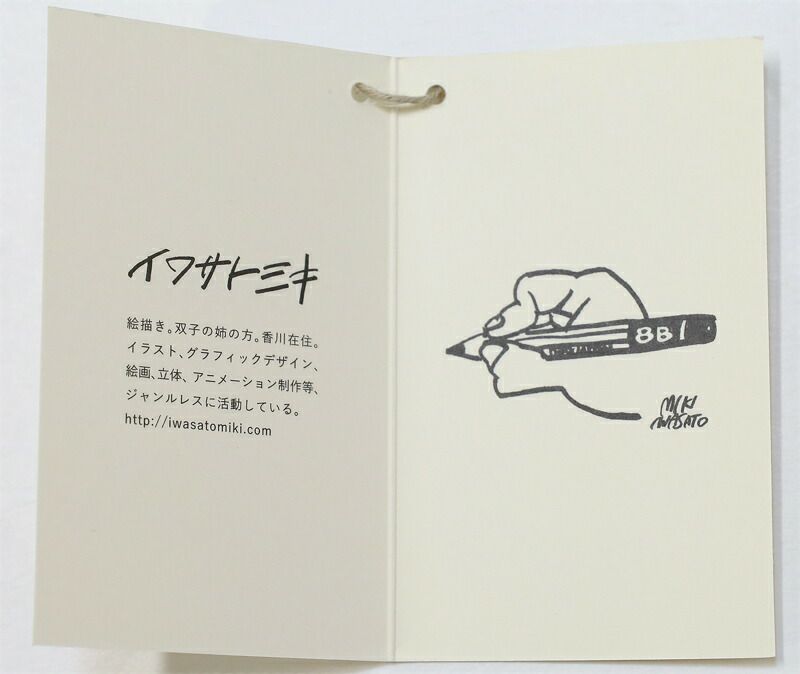 イワサトミキ
絵描き。双子の姉の方。香川在住。
イラスト、グラフィックデザイン、
絵画、立体、アニメーション制作等、
ジャンルレスに活動している。
http://iwasatomiki.com
8B
MIKI
IWASATO